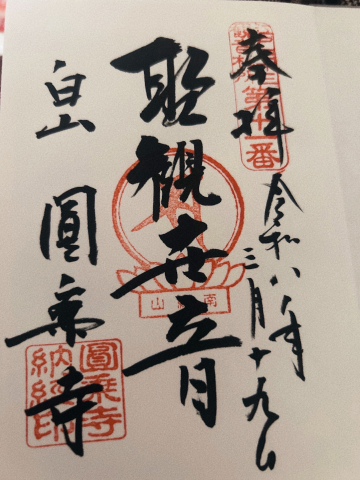 奉拝
第十一番
令和八年
三月十九日
聖観世音
南縁山
白山
圓乗寺
圓乗寺
納経印